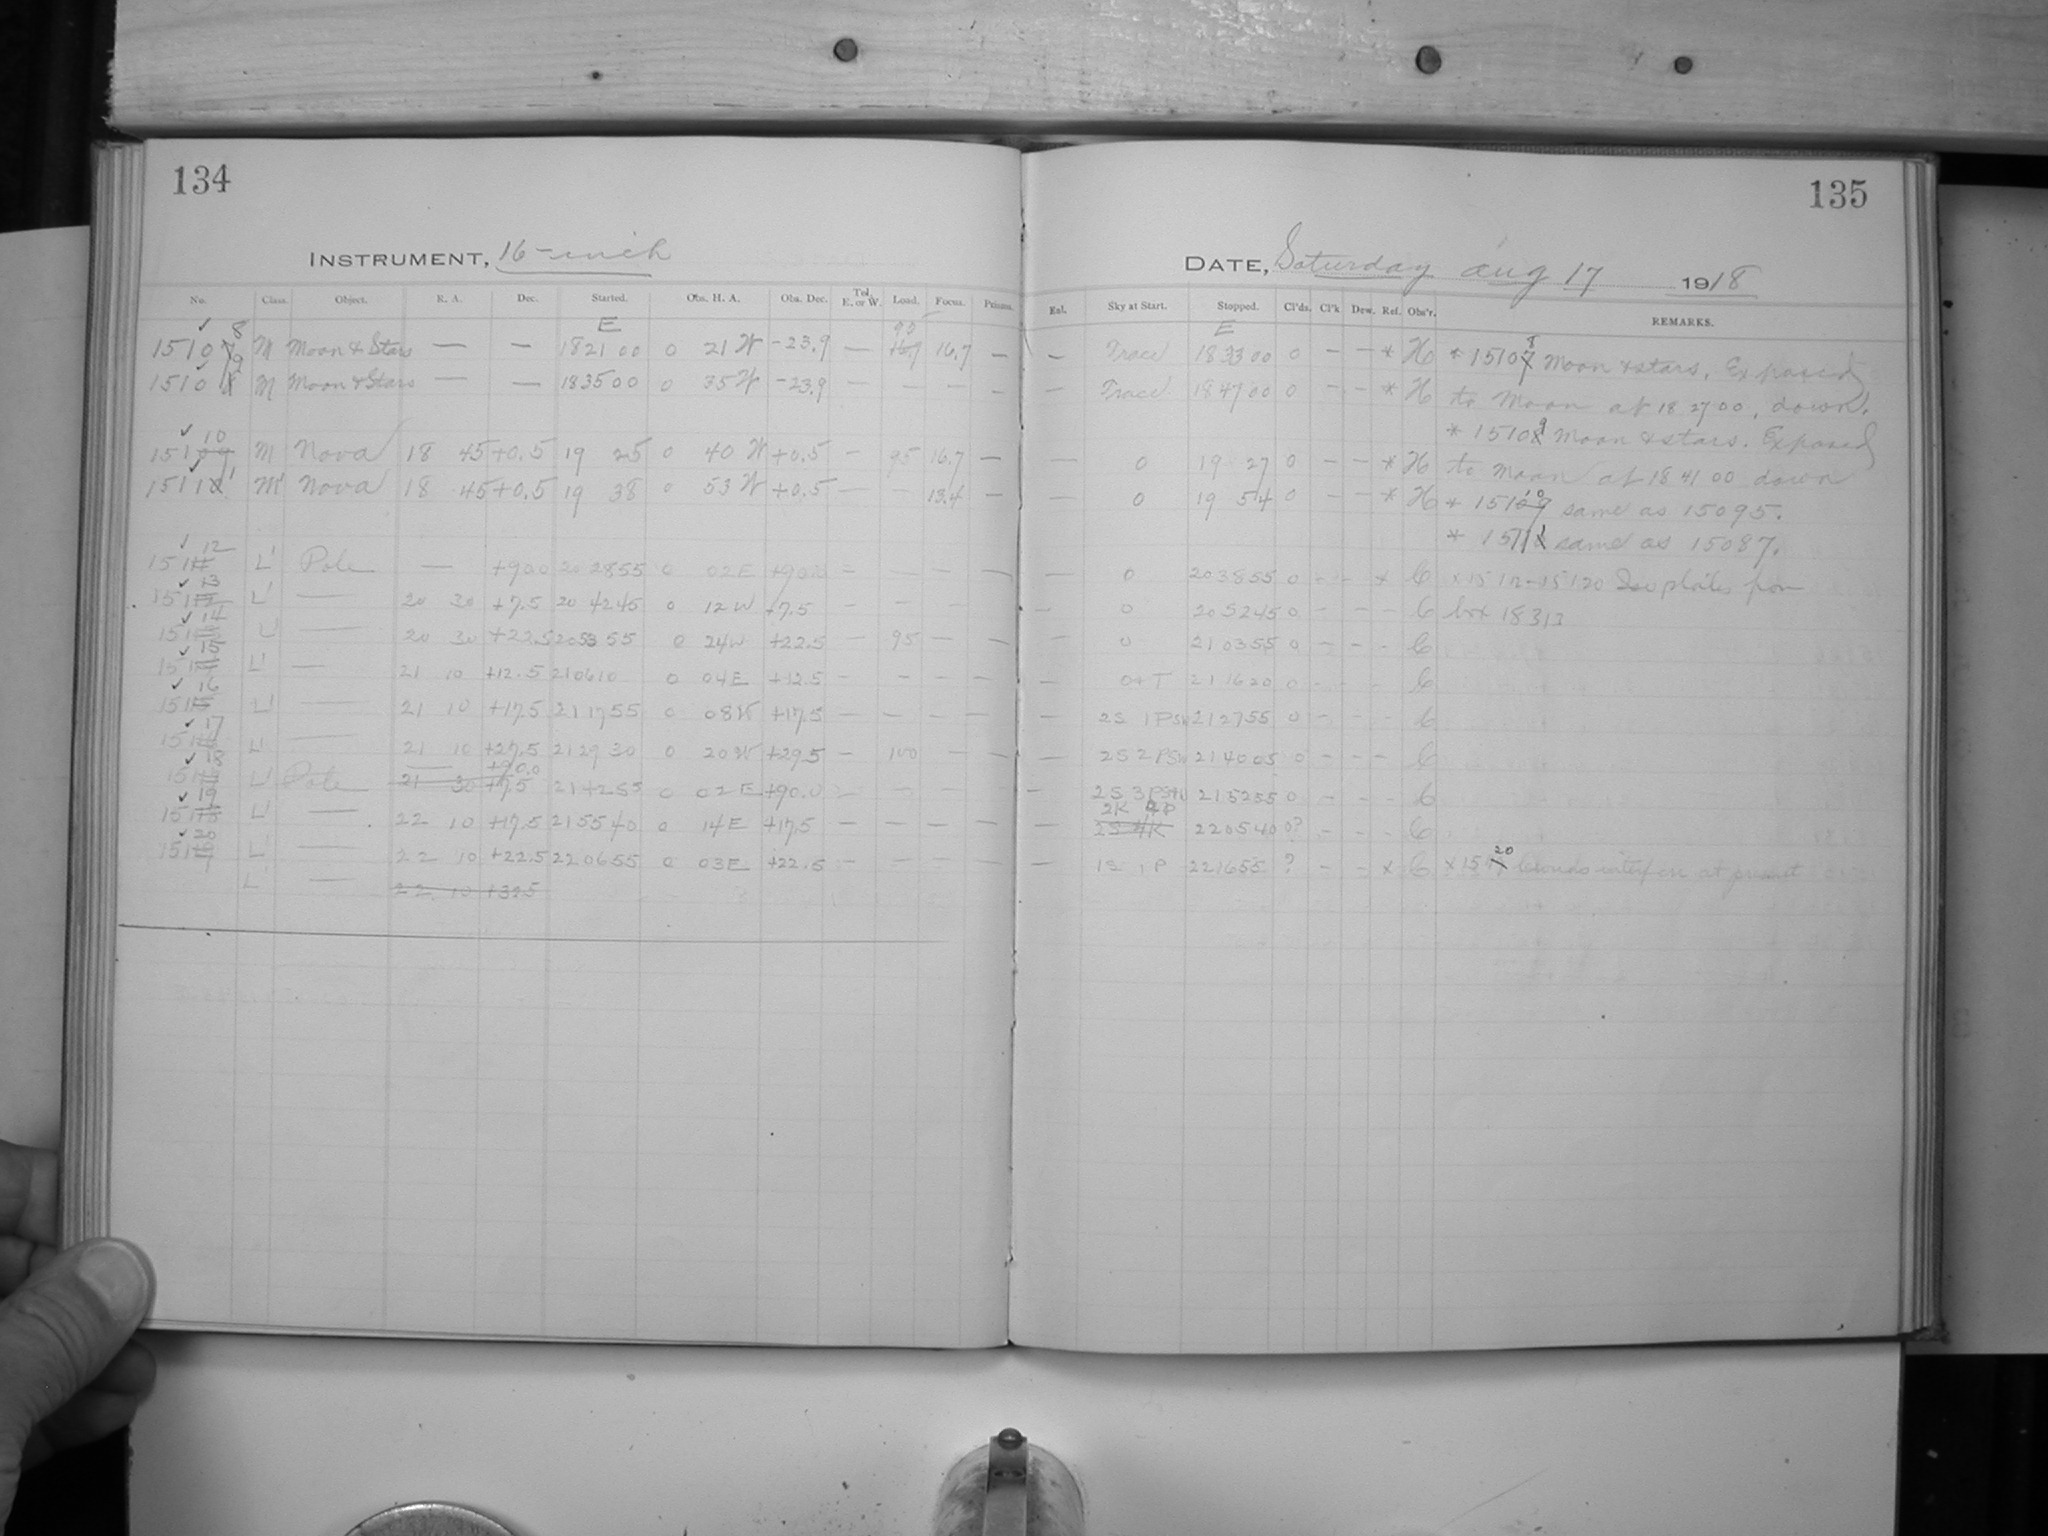 134
INSTRUMENT, 16-inch
No. Class. Object. R. A. Dec. Started. Obs. H. A. Obs. Dec. Tel. E. or W. Load. Focus. Prisms.
E 95
15108 M Moon & Stars — — 18 21 00 0 21 W -23.9 — 16.7 —
15109 M Moon & Stars — — 18 35 00 0 35 W -23.9 — — — —
15110 M Nova 18 45 +0.5 19 25 0 40 W +0.5 — 95 16.7 —
15111 M' Nova 18 45 +0.5 19 38 0 53 W +0.5 — — 13.4 —
15112 L' Pole — +90.0 20 28 55 0 02 E +90.0 — — — —
15113 L' — 20 30 +7.5 20 42 45 0 12 W +7.5 — — — —
15114 L' — 20 30 +22.5 20 53 55 0 24 W +22.5 — 95 — —
15115 L' — 21 10 +12.5 21 06 10 0 04 E +12.5 — — — —
15116 L' — 21 10 +17.5 21 17 55 0 08 W +17.5 — — — —
15117 L' — 21 10 +27.5 21 29 30 0 20 W +29.5 — 100 — —
— +90.0
15118 L' Pole 21 30 +7.5 21 42 55 0 02 E +90.0 — — — —
15119 L' — 22 10 +17.5 21 55 40 0 14 E +17.5 — — — —
15120 L' — 22 10 +22.5 22 06 55 0 03 E +22.5 — — — —
L' — 22 10 +32.5
135
DATE, Saturday Aug 17 1918
Exl. Sky at Start. Stopped. Cl'ds. Cl'k Dew. Ref. Obs'r. REMARKS.
E
— Trace 18 33 00 0 — — * H * 15108 Moon & stars. Exposed
— Trace 18 47 00 0 — — * H to Moon at 18 27 00, down.
* 15109 Moon & stars. Exposed
— 0 19 27 0 — — * H to Moon at 18 41 00 down
— 0 19 54 0 — — * H * 15110 same as 15095.
* 15111 same as 15087.
— 0 20 38 55 0 — — * C * 15112-15120 Iso plates from
— 0 20 52 45 0 — — — C box 18313
0 21 03 55 0 — — — C
— 0+T 21 16 20 0 — — — C
— 2S 1P SW 21 27 55 0 — — — C
— 2S 2P SW 21 40 05 0 — — — C
— 2S 3P SW 21 52 55 0 — — — C
2K 2P
— 2S 4K 22 05 40 0? — — — C
— 1S 1P 22 16 55 ? — — * C * 15120 Clouds interfere at present